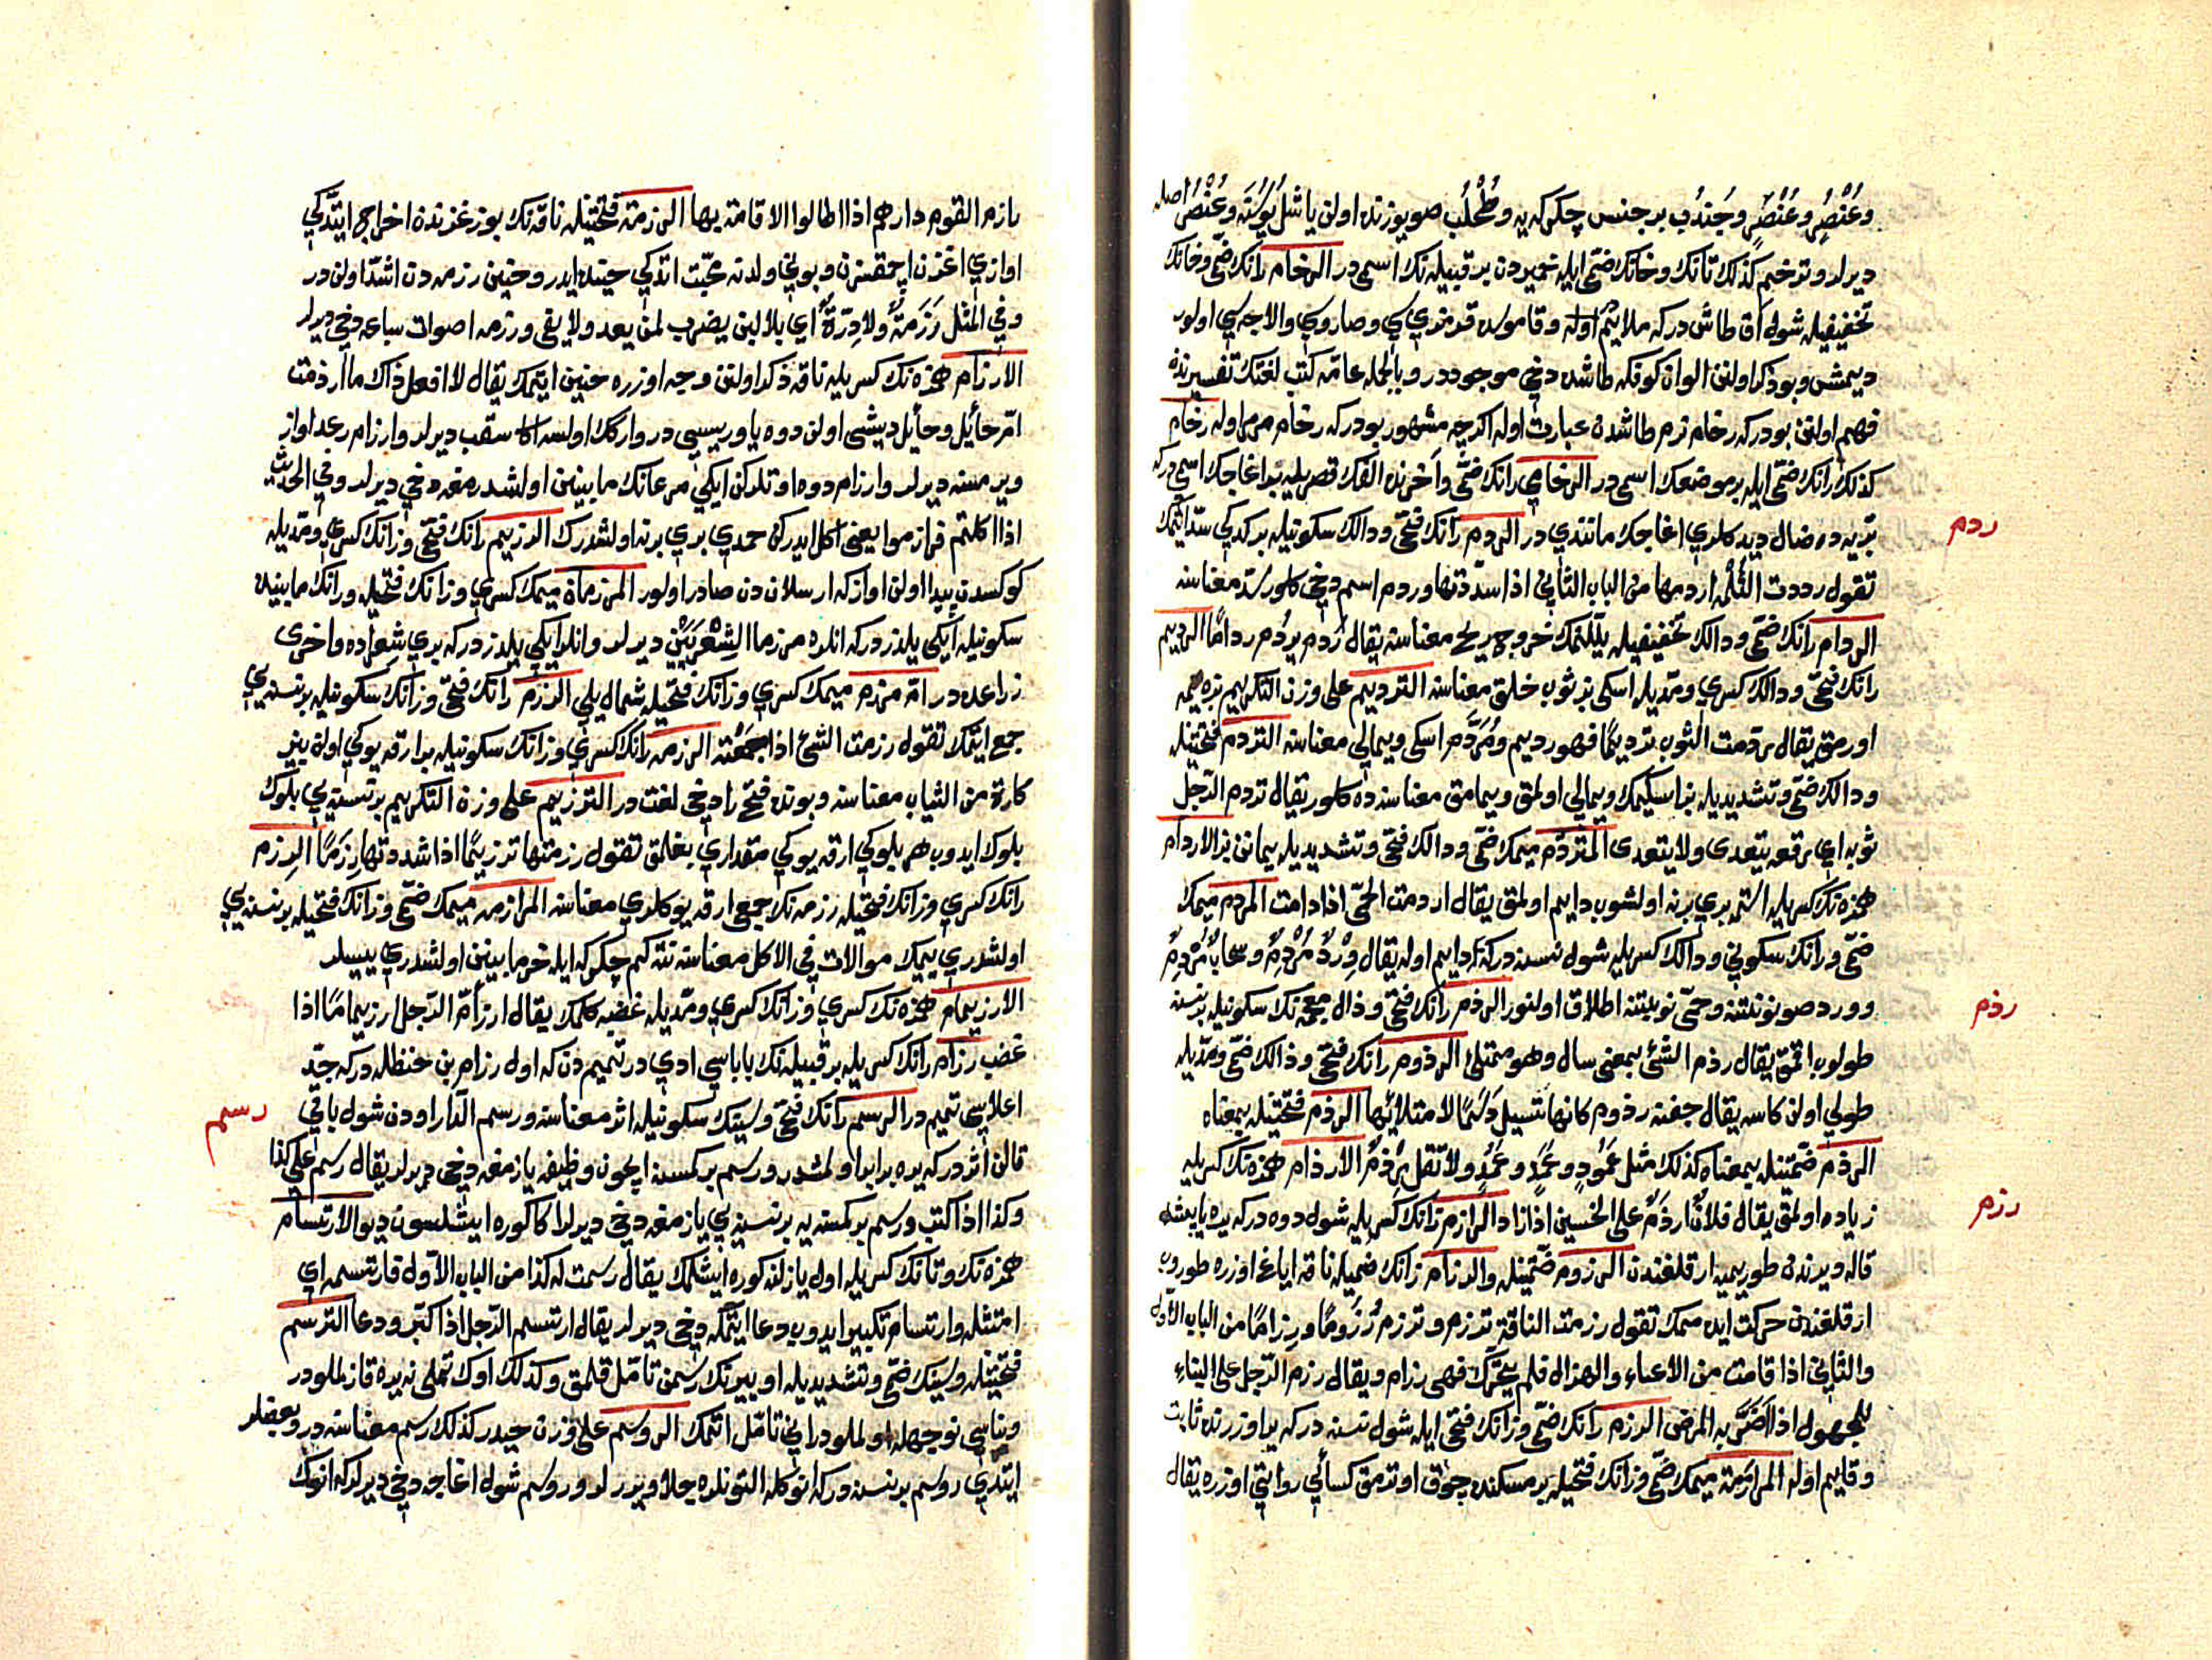 وعُنْصُرٍ وعُنْصَرٍ وجُندُب بر جنس چكركه يه وطُحْلُب صو يوزنده اولن ياشل يُوسُنَه وعُنْصُر اصله
ديرلر وترخم كذلك تانك وخانك ضمّى ايله حميردن بر قبيله نك اسمى در الرخام رانك ضمّى وخانك
تخفيفيله شول آق طاش در كه ملايم اوله وقاموس قرمزي كي وصاروي والاجه كي اولور
ديمشى وبو ذكر اولنن الوان كونكه طاشده دخى موجوددر وبالجمله عامّه كتب لغتك تفسيرنده
فهم اولنن بودركه رخام نرم طاشدن عبارت اوله اكرچه مشهور بودركه رخام مرمر اوله رخام
كذلك رانك ضمّى ايله بر موضعك اسمى در الرخامي رانك ضمّى وآخرنده الفك قصريله بر اغاجك اسمى دركه
بريه ده ضال ديدكلري اغاجك مانندي در الردم رانك فتحى ودالك سكونيله بر كدكي سدّ ايتمك
ردم
تقول رددت الثُلْمَه اردمها من الباب الثانى اذا سدّدتها وردم اسم دخى كلور سدّ معناسنه
الردام رانك ضمّى ودالك تخفيفيله يلّنمك خروج ريح معناسنه يقال رُدم يردُم رداماً الرديم
رانك فتحى ودالك كسري ومدّيله اسكى بز ثوب خلق معناسنه الترديم على وزن التكريم بزه يمه
اورمق يقال ردّمت الثوب ترديمًا فهو رديم ومُردَّم اسكى ويمالى معناسنه التردم فتحتينله
ودالك ضمّى وتشديديله بز اسكيمك ويمالى اولمق ويمامق معناسنه ده كلور يقال تردم الرّجل
ثوبه اي رقعه يتعدى ولا يتعدى المتردّم ميمك ضمّى ودالك فتحى وتشديديله يماننن بز الاردام
همزه نك كسريله استمه بري برنه اولشوب دايم اولمق يقال اردمت الحمّى اذا دامت المردم ميمك
ضمّى ورانك سكونى ودالك كسريله شول نسنه دركه دايم اوله يقال وِرْدٌ مُرْدِمٌ وسحابٌ مُرْدِمٌ
وورد صو نوبتنه وحمّى نوبتنه اطلاق اولنور الرذم رانك فتحى وذال معجمه نك سكونيله برنسنه
رذم
طولوب اقمق يقال رذم الشئ بمعنى سال وهو ممتلئ الرذوم رانك فتحى وذالك ضمّى ومدّيله
طولى اولن كاسه يقال جفنه رذوم كانها تسيل دَسَمًا لامتلائها الرذم فتحتينله بمعناه
الرذم ضمّتينله بمعناه كذلك مثل عَمُودٍ وعَمَدٍ وعُمُدٍ ولا تقل رِذَمٌ الارذام همزه نك كسريله
زياده اولمق يقال فلانٌ ارذَمُ على الخسين اذا زاد الرازم رانك كسريله شول دوه دركه يره يابشه
رزم
قاله ويرندن طوريميه ارقلغندن الرزوم ضمّتينله والرزام رانك ضمّيله ناقه اياغ اوزره طوروب
ارقلغندن حركت ايده ممك تقول رزمت الناقة ترزم وترزم رُزُومًا ورِزامًا من الباب الاول
والثاني اذا قامت من الاعياء والهزال فلم يتحرّك فهى رزام ويقال رزم الرّجل على البناء
للمجهول اذا اضرّ به المرض الرزم رانك ضمّى وزانك فتحى ايله شول نسنه دركه ير اوزرنده ثابت
وقايم اوله المرازمة ميمك ضمّى وزانك فتحيله بر مسكنده چوق اوترمق كسائى روايتى اوزره يقال
رازم القوم دارهم اذا اطالوا الاقامة بها الرزمة فتحتينله ناقه نك بوز غزندن اخراج ايتدكى
اوازي اغزن اچمقسزن وبونى ولدنه محبّت اتدكى حينده ايدر وحنين رزمه دن اشدّ اولن در
وفي المثل رَزَمَةٌ ولا دِرّةٌ اى بلا لبن يضرب لمن يعد ولا يفى ورزمه اصوات سباعه دخى ديرلر
الارزام همزه نك كسريله ناقه ذكر اولنن وجه اوزره حنين ايتمك يقال لا افعل ذاك ما ارزمت
امّ حائل وحائل ديشى اولن دوه ياوريسى در واركك اولسه اكا سقب ديرلر وارزام رعد اواز
ويرمسنه ديرلر وارزام دوه اوتلركن ايكي مرعانك مابينن اولشدرمغه دخى ديرلر وفي الحديث
اذا اكلتم فرازموا يعنى اكل ايدركن حمدي بري برنه اولشدرك الرزيم رانك فتحى وزانك كسري ومدّيله
كوكسدن پيدا اولن اوازكه ارسلاندن صادر اولور المرزماة ميمك كسري وزانك فتحيله ورانك مابينده
سكونيله ايكي يلدز دركه انلره مرزما الشِعْرَيَيْنِ ديرلر وانلر ايكي يلدز دركه بري شِعراده واخرى
زراعده در امّ مرزم ميمك كسري وزانك فتحيله شمال يلى الرزم رانك فتحى وزانك سكونيله برنسنه يي
جمع ايتمك تقول رزمت الشئ اذا جَمَعْتَه الرزمه رانك كسري وزانك سكونيله بر ارقه يوكى اولن بز
كارة من الثياب معناسنه وبونده فتح را دخى لغت در الترزيم على وزن التكريم برنسنه يي بلوك
بلوك ايدوب هر بلوكي ارقه يوكي مقداري بغلمق تقول رزمتها ترزيمًا اذا شددتها رِزَمًا الرزم
رانك كسري وزانك فتحيله رزمه نك جمع ارقه يوكلري معناسنه المرازمه ميمك ضمّى وزانك فتحيله برنسنه يي
اولشدري يمك موالات في الاكل معناسنه نته كم چكركه ايله خرما بينن اولشدري يييلر
الارزيمام همزه نك كسري وزانك كسري ومدّيله غضبه كلمك يقال ارزأمّ الرّجل ارزيمامًا اذا
غضب رزام رانك كسريله بر قبيله نك باباسى ادي در تميم دن كه اول رزام بن حنظله دركه جدّ
اعلاسى تميم در الرسم رانك فتحى وسينك سكونيله اثر معناسنه ورسم الدّار اودن شول باقي
رسم
قالن اثر دركه يره برابر اولمشدر ورسم بر كمسنه ايچون وظيفه يازمغه دخى ديرلر يقال رسم على كذا
وكذا اذا كتب ورسم بر كمسنه يه برنسنه يي يازمغه دخى ديرلر اكا كوره ايشلسون ديو الارتسام
همزه نك وتانك كسريله اول يازلنه كوره ايشلمك يقال رسمت له كذا من الباب الاوّل فارتسمه اي
امتثله وارتسام تكبير ايدوب دعا ايتمكه دخى ديرلر يقال ارتسم الرّجل اذا كبّر ودعا الترسم
فتحتينله وسينك ضمّى وتشديديله او ييرنك رسمن تأمّل قلمق وكذلك اوك تملى نه يره قازلملودر
وبناسى نوجهله اولملودر انى تأمّل اتمك الروسم على وزن حيدر كذلك رسم معناسنه در وبعضلر
ايتدي روسم برنسنه دركه انوكله التونلره جلا ويررلر وروسم شول اغاجه دخى ديرلر كه انوك